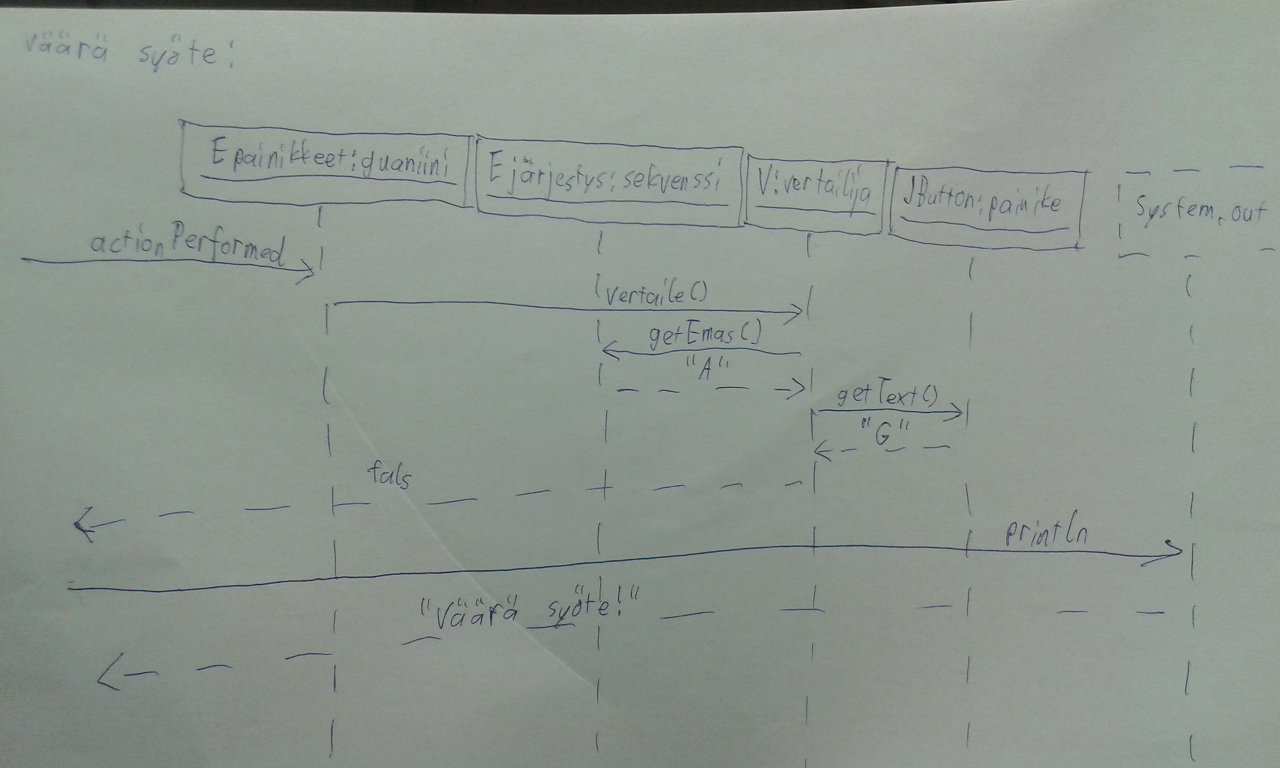 väärä syöte:
Epainikkeet:guaniini
Ejärjestys:sekvenssi
V:vertailija
JButton:painike
System.out
actionPerformed
vertaile()
getEmas()
"A"
getText()
"G"
fals
println
"Väärä syöte!"